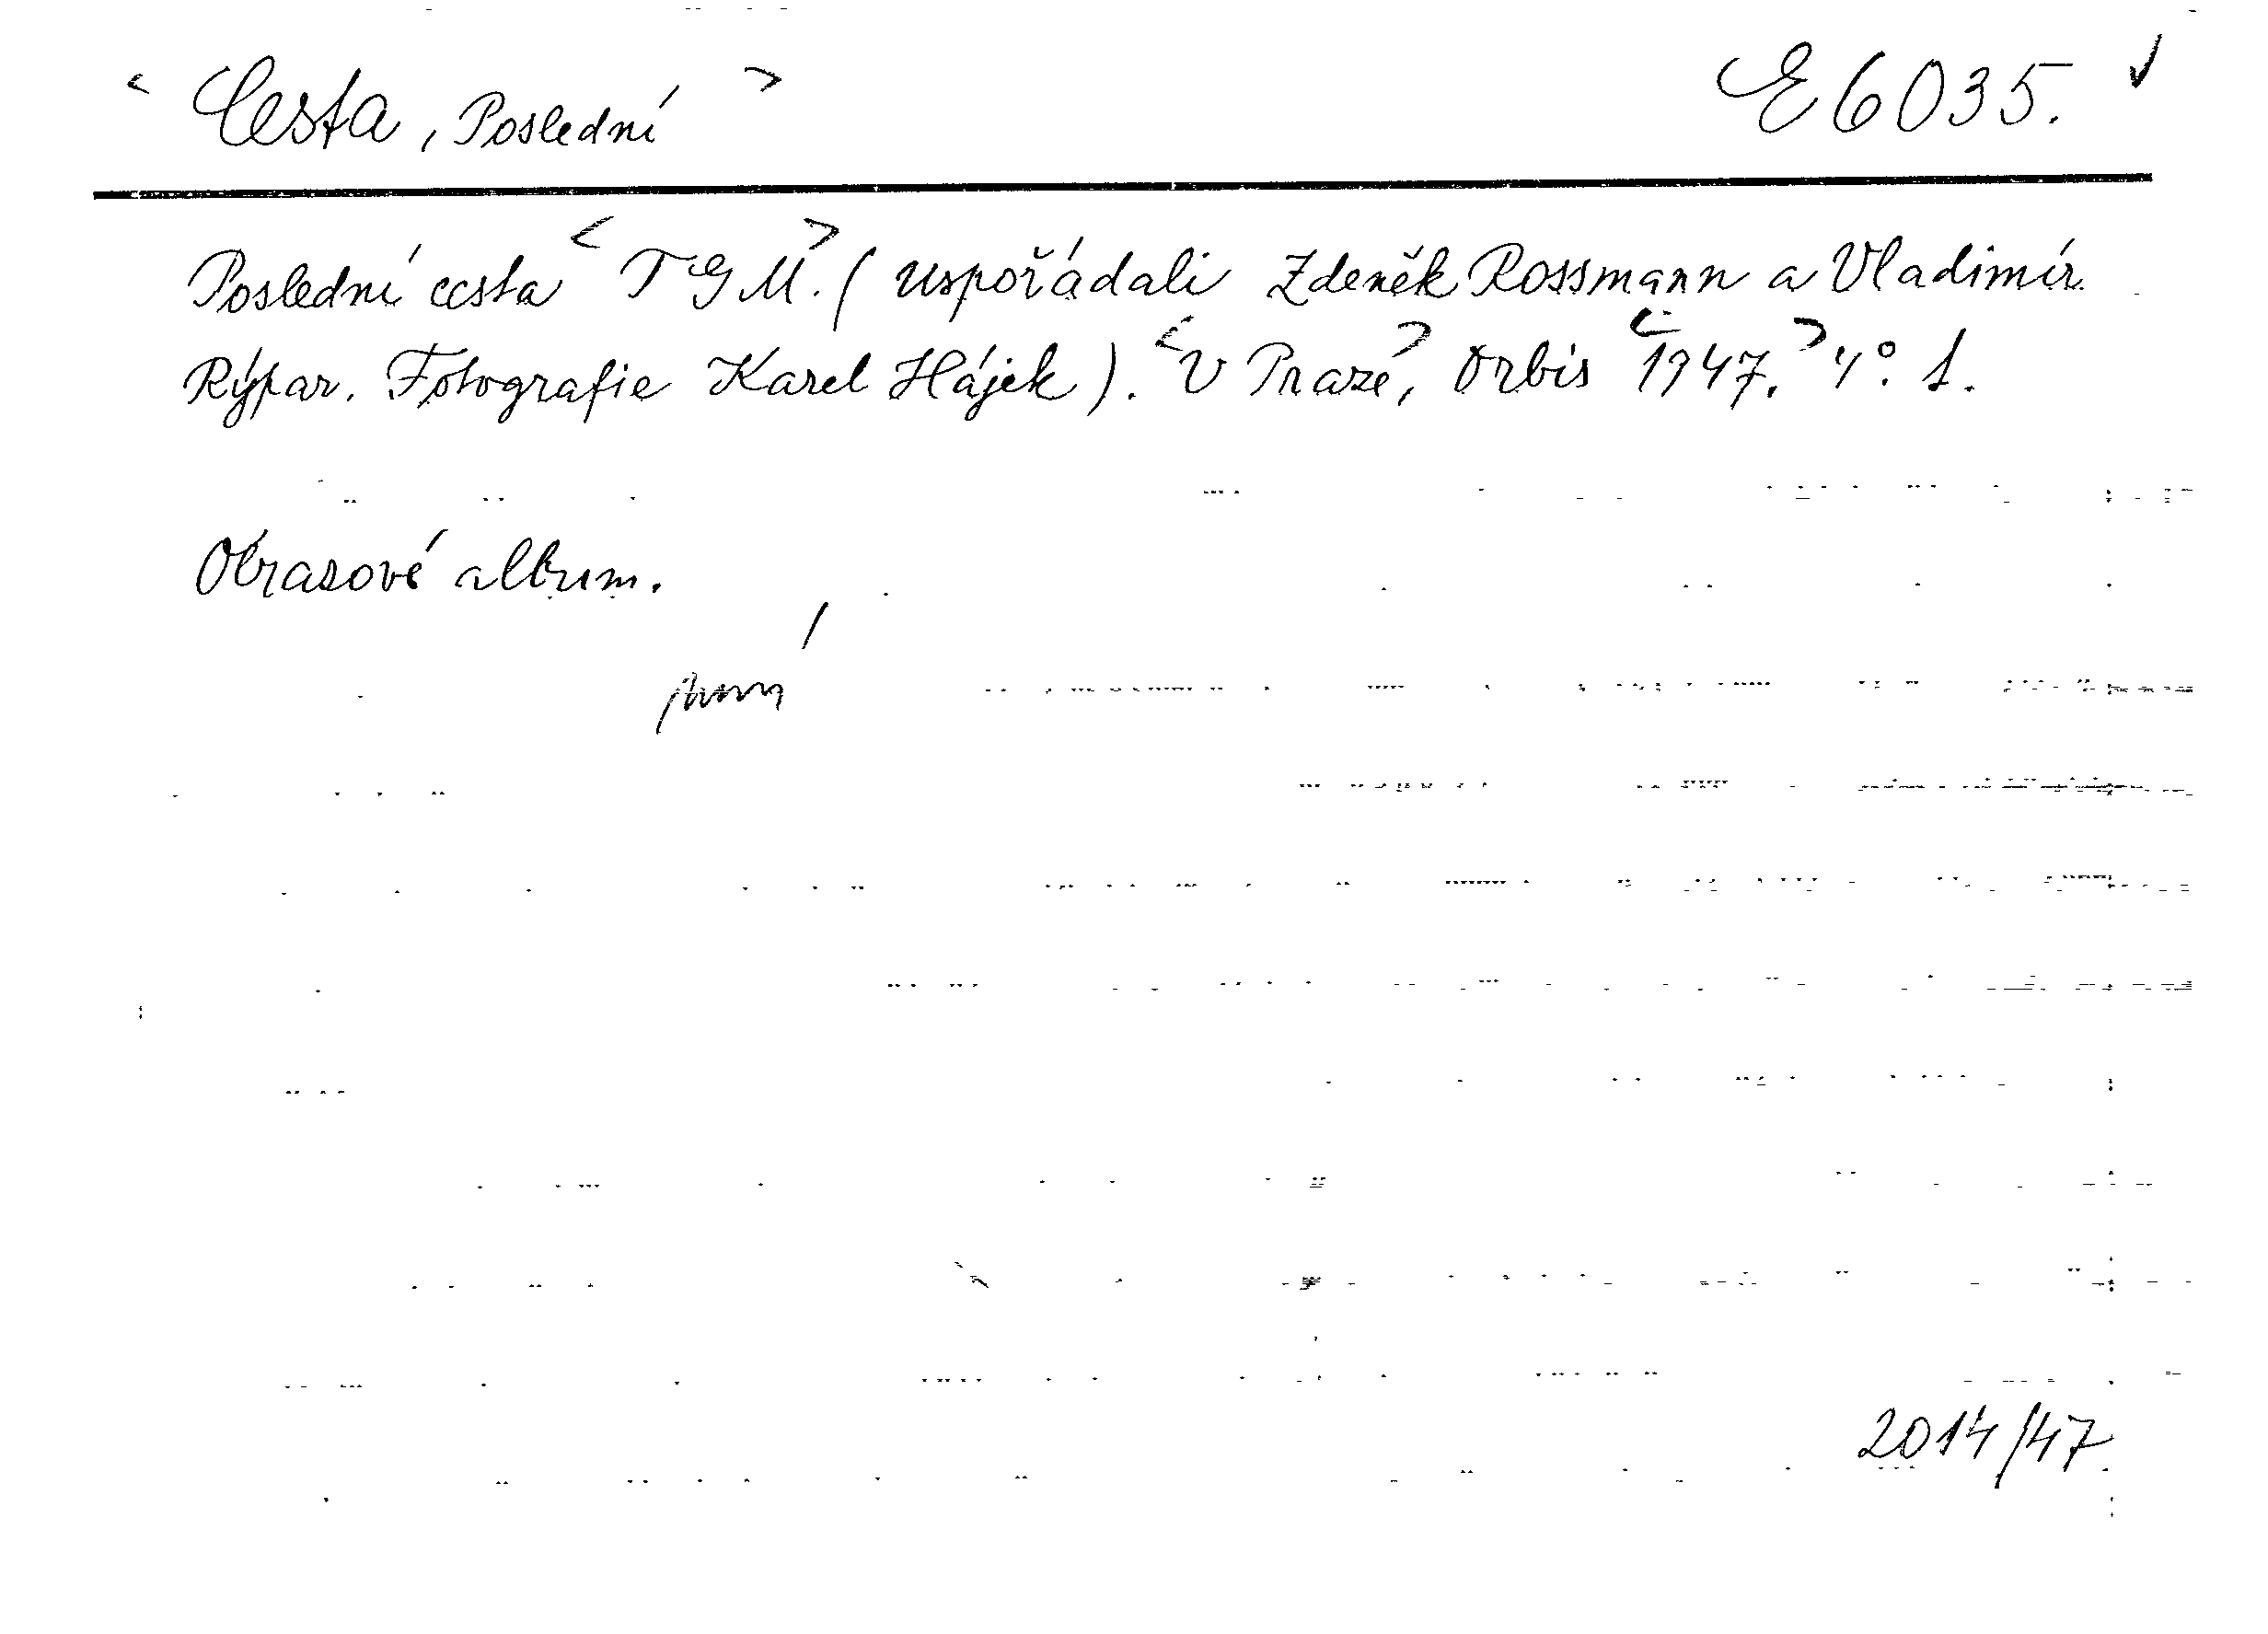 < Cesta, Poslední > E 6035.
Poslední cesta <TGM>. (uspořádali Zdeněk Rossmann a Vladimír
Rýpar. Fotografie Karel Hájek). <V Praze>, Orbis <1947.> 4°. 1.
Obrasové album.
2014/47